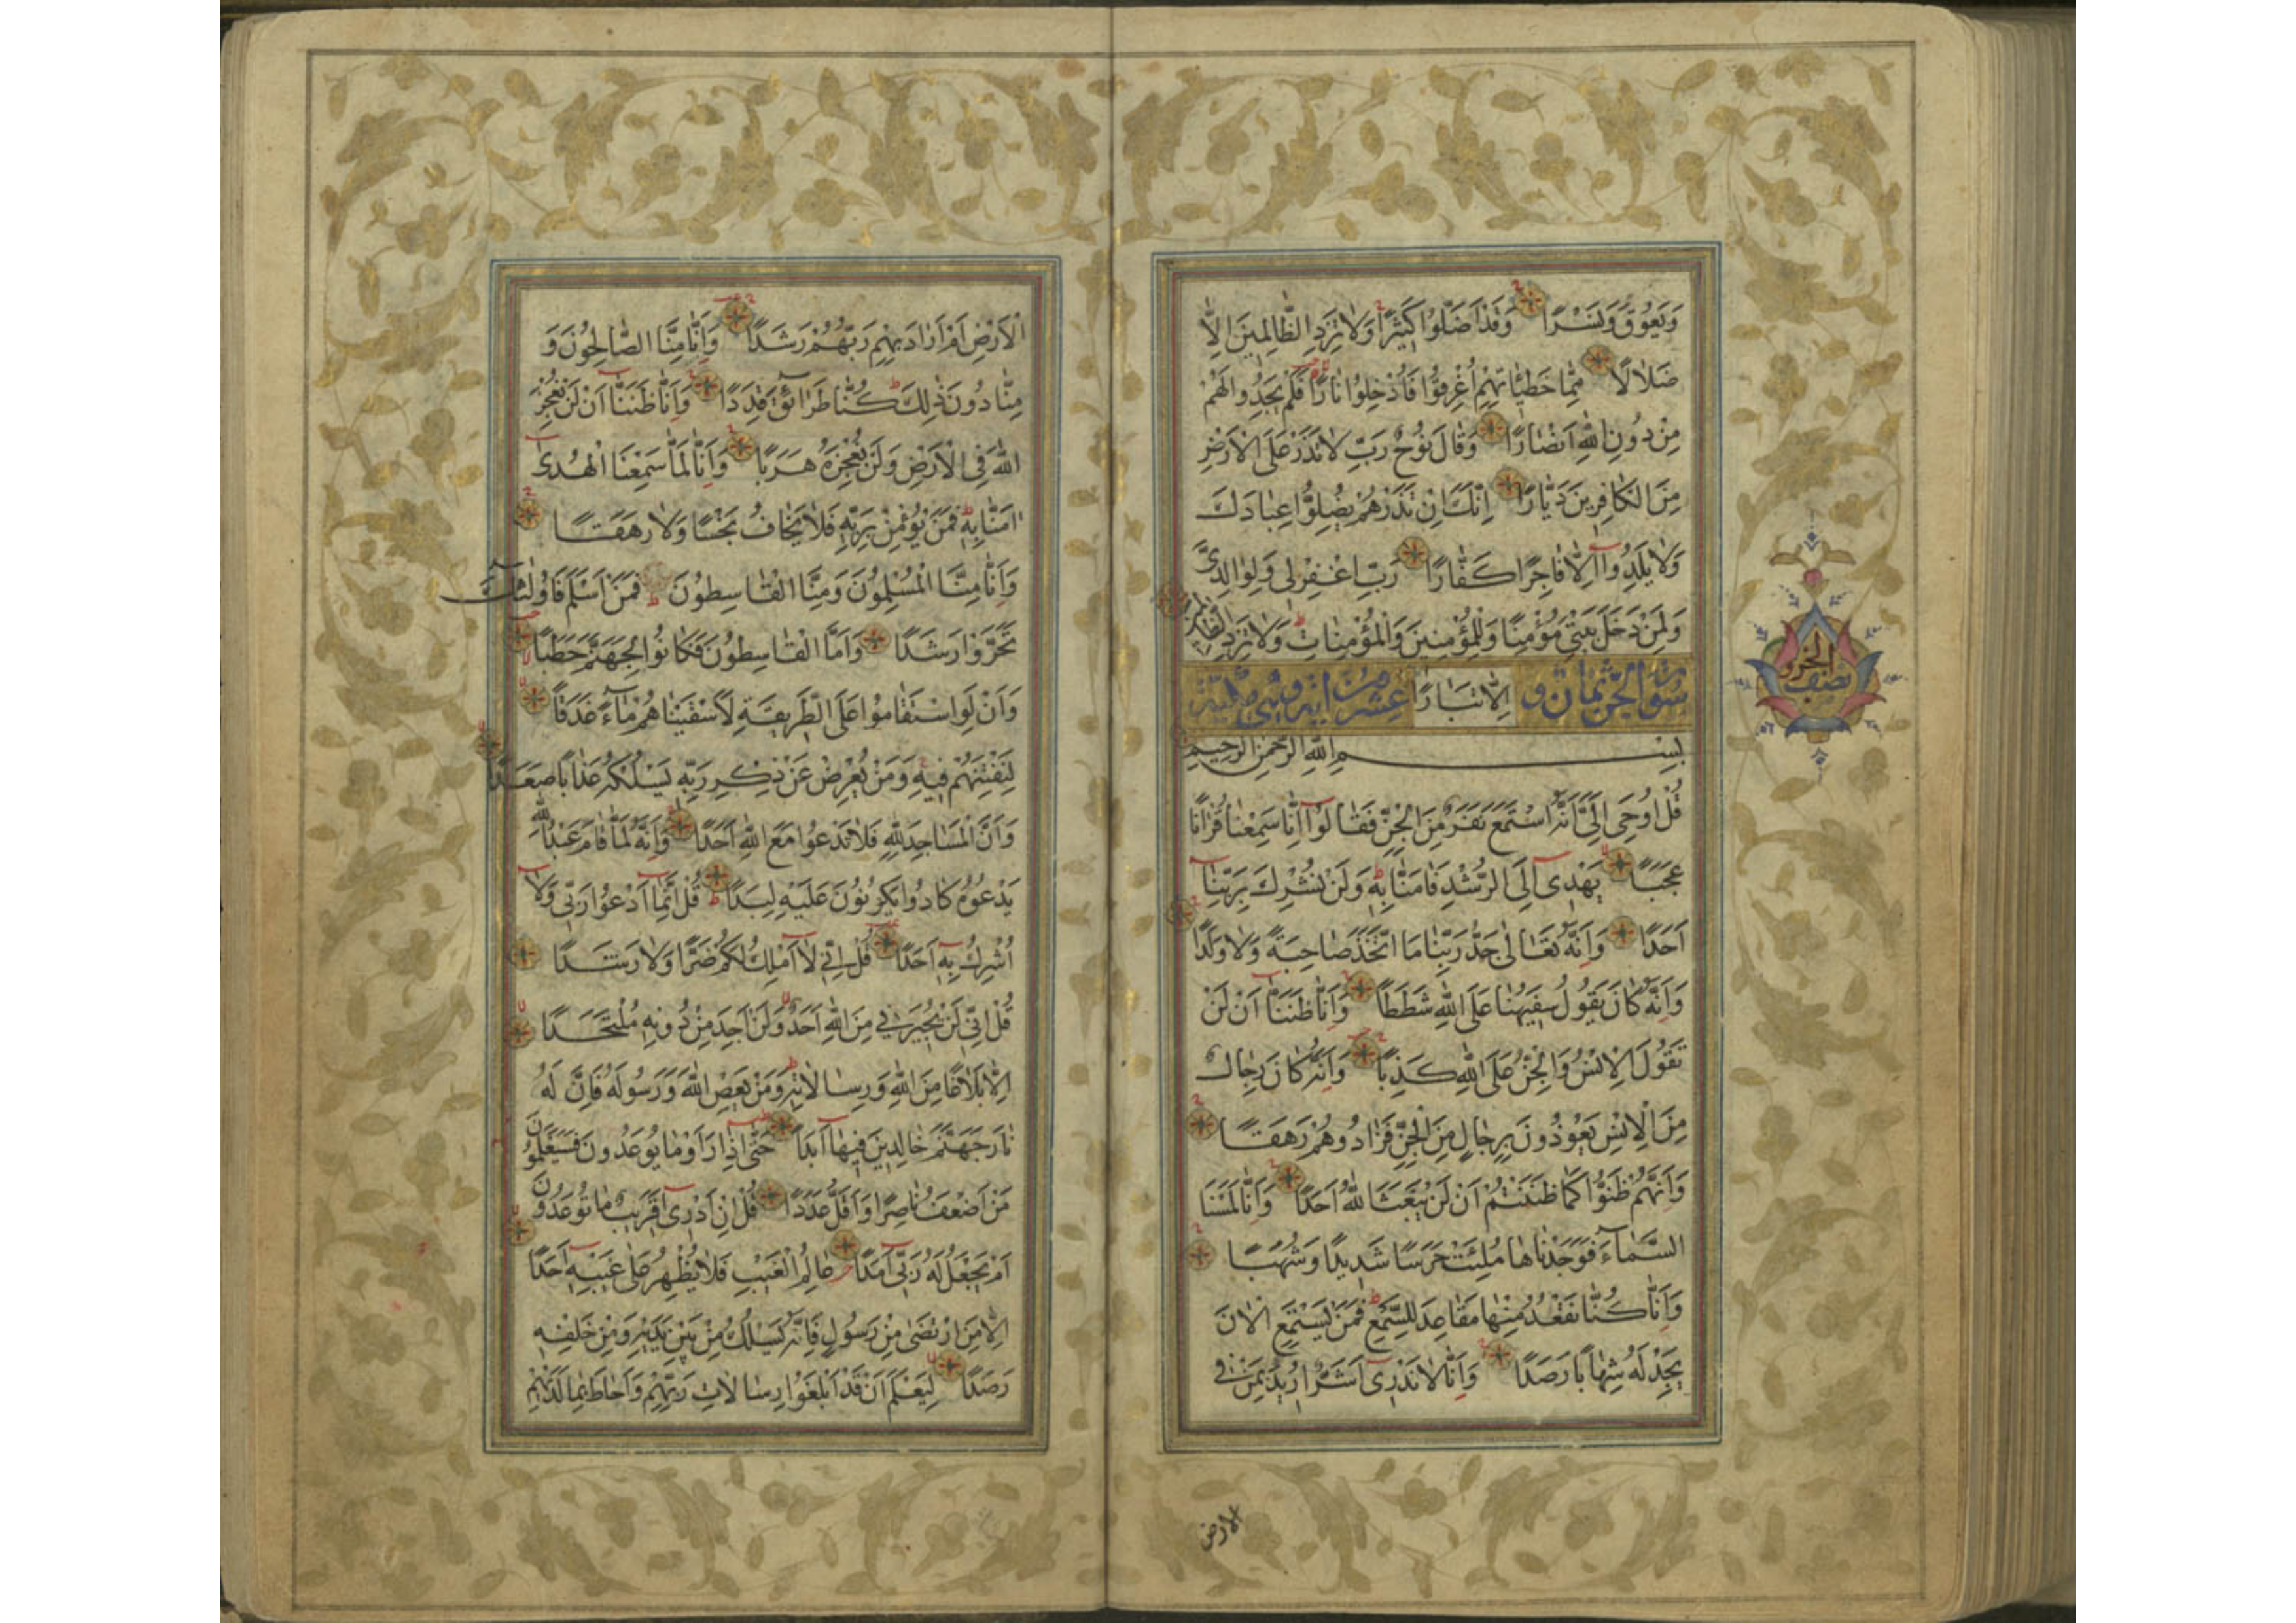 وَيَعُوقَ وَنَسْرًا وَقَدْ اَضَلُّوا كَثِيرًا وَلَا تَزِدِ الظَّالِمِينَ اِلَّا
ضَلَالًا مِمَّا خَطِيئَاتِهِمْ اُغْرِقُوا فَاُدْخِلُوا نَارًا فَلَمْ يَجِدُوا لَهُمْ
مِنْ دُونِ اللّٰهِ اَنْصَارًا وَقَالَ نُوحٌ رَبِّ لَا تَذَرْ عَلَى الْاَرْضِ
مِنَ الْكَافِرِينَ دَيَّارًا اِنَّكَ اِنْ تَذَرْهُمْ يُضِلُّوا عِبَادَكَ
وَلَا يَلِدُوا اِلَّا فَاجِرًا كَفَّارًا رَبِّ اغْفِرْ لِي وَلِوَالِدَيَّ
وَلِمَنْ دَخَلَ بَيْتِيَ مُؤْمِنًا وَلِلْمُؤْمِنِينَ وَالْمُؤْمِنَاتِ وَلَا تَزِدِ الظَّالِمِينَ
سورة الجن ثمان و اِلَّا تَبَارًا عشرون اية وهي مكية
بِسْمِ اللّٰهِ الرَّحْمٰنِ الرَّحِيمِ
قُلْ اُوحِيَ اِلَيَّ اَنَّهُ اسْتَمَعَ نَفَرٌ مِنَ الْجِنِّ فَقَالُوا اِنَّا سَمِعْنَا قُرْاٰنًا
عَجَبًا يَهْدِي اِلَى الرُّشْدِ فَاٰمَنَّا بِهِ وَلَنْ نُشْرِكَ بِرَبِّنَا
اَحَدًا وَاَنَّهُ تَعَالٰى جَدُّ رَبِّنَا مَا اتَّخَذَ صَاحِبَةً وَلَا وَلَدًا
وَاَنَّهُ كَانَ يَقُولُ سَفِيهُنَا عَلَى اللّٰهِ شَطَطًا وَاَنَّا ظَنَنَّا اَنْ لَنْ
تَقُولَ الْاِنْسُ وَالْجِنُّ عَلَى اللّٰهِ كَذِبًا وَاَنَّهُ كَانَ رِجَالٌ
مِنَ الْاِنْسِ يَعُوذُونَ بِرِجَالٍ مِنَ الْجِنِّ فَزَادُوهُمْ رَهَقًا
وَاَنَّهُمْ ظَنُّوا كَمَا ظَنَنْتُمْ اَنْ لَنْ يَبْعَثَ اللّٰهُ اَحَدًا وَاَنَّا لَمَسْنَا
السَّمَاءَ فَوَجَدْنَاهَا مُلِئَتْ حَرَسًا شَدِيدًا وَشُهُبًا
وَاَنَّا كُنَّا نَقْعُدُ مِنْهَا مَقَاعِدَ لِلسَّمْعِ فَمَنْ يَسْتَمِعِ الْاٰنَ
يَجِدْ لَهُ شِهَابًا رَصَدًا وَاَنَّا لَا نَدْرِي اَشَرٌّ اُرِيدَ بِمَنْ فِي
الارض
نصف الجزو
الْاَرْضِ اَمْ اَرَادَ بِهِمْ رَبُّهُمْ رَشَدًا وَاَنَّا مِنَّا الصَّالِحُونَ وَ
مِنَّا دُونَ ذٰلِكَ كُنَّا طَرَائِقَ قِدَدًا وَاَنَّا ظَنَنَّا اَنْ لَنْ نُعْجِزَ
اللّٰهَ فِي الْاَرْضِ وَلَنْ نُعْجِزَهُ هَرَبًا وَاَنَّا لَمَّا سَمِعْنَا الْهُدٰى
اٰمَنَّا بِهِ فَمَنْ يُؤْمِنْ بِرَبِّهِ فَلَا يَخَافُ بَخْسًا وَلَا رَهَقًا
وَاَنَّا مِنَّا الْمُسْلِمُونَ وَمِنَّا الْقَاسِطُونَ فَمَنْ اَسْلَمَ فَاُولٰئِكَ
تَحَرَّوْا رَشَدًا وَاَمَّا الْقَاسِطُونَ فَكَانُوا لِجَهَنَّمَ حَطَبًا
وَاَنْ لَوِ اسْتَقَامُوا عَلَى الطَّرِيقَةِ لَاَسْقَيْنَاهُمْ مَاءً غَدَقًا
لِنَفْتِنَهُمْ فِيهِ وَمَنْ يُعْرِضْ عَنْ ذِكْرِ رَبِّهِ يَسْلُكْهُ عَذَابًا صَعَدًا
وَاَنَّ الْمَسَاجِدَ لِلّٰهِ فَلَا تَدْعُوا مَعَ اللّٰهِ اَحَدًا وَاَنَّهُ لَمَّا قَامَ عَبْدُ اللّٰهِ
يَدْعُوهُ كَادُوا يَكُونُونَ عَلَيْهِ لِبَدًا قُلْ اِنَّمَا اَدْعُوا رَبِّي وَلَا
اُشْرِكُ بِهِ اَحَدًا قُلْ اِنِّي لَا اَمْلِكُ لَكُمْ ضَرًّا وَلَا رَشَدًا
قُلْ اِنِّي لَنْ يُجِيرَنِي مِنَ اللّٰهِ اَحَدٌ وَلَنْ اَجِدَ مِنْ دُونِهِ مُلْتَحَدًا
اِلَّا بَلَاغًا مِنَ اللّٰهِ وَرِسَالَاتِهِ وَمَنْ يَعْصِ اللّٰهَ وَرَسُولَهُ فَاِنَّ لَهُ
نَارَ جَهَنَّمَ خَالِدِينَ فِيهَا اَبَدًا حَتّٰى اِذَا رَاَوْا مَا يُوعَدُونَ فَسَيَعْلَمُونَ
مَنْ اَضْعَفُ نَاصِرًا وَاَقَلُّ عَدَدًا قُلْ اِنْ اَدْرِي اَقَرِيبٌ مَا تُوعَدُونَ
اَمْ يَجْعَلُ لَهُ رَبِّي اَمَدًا عَالِمُ الْغَيْبِ فَلَا يُظْهِرُ عَلٰى غَيْبِهِ اَحَدًا
اِلَّا مَنِ ارْتَضٰى مِنْ رَسُولٍ فَاِنَّهُ يَسْلُكُ مِنْ بَيْنِ يَدَيْهِ وَمِنْ خَلْفِهِ
رَصَدًا لِيَعْلَمَ اَنْ قَدْ اَبْلَغُوا رِسَالَاتِ رَبِّهِمْ وَاَحَاطَ بِمَا لَدَيْهِمْ